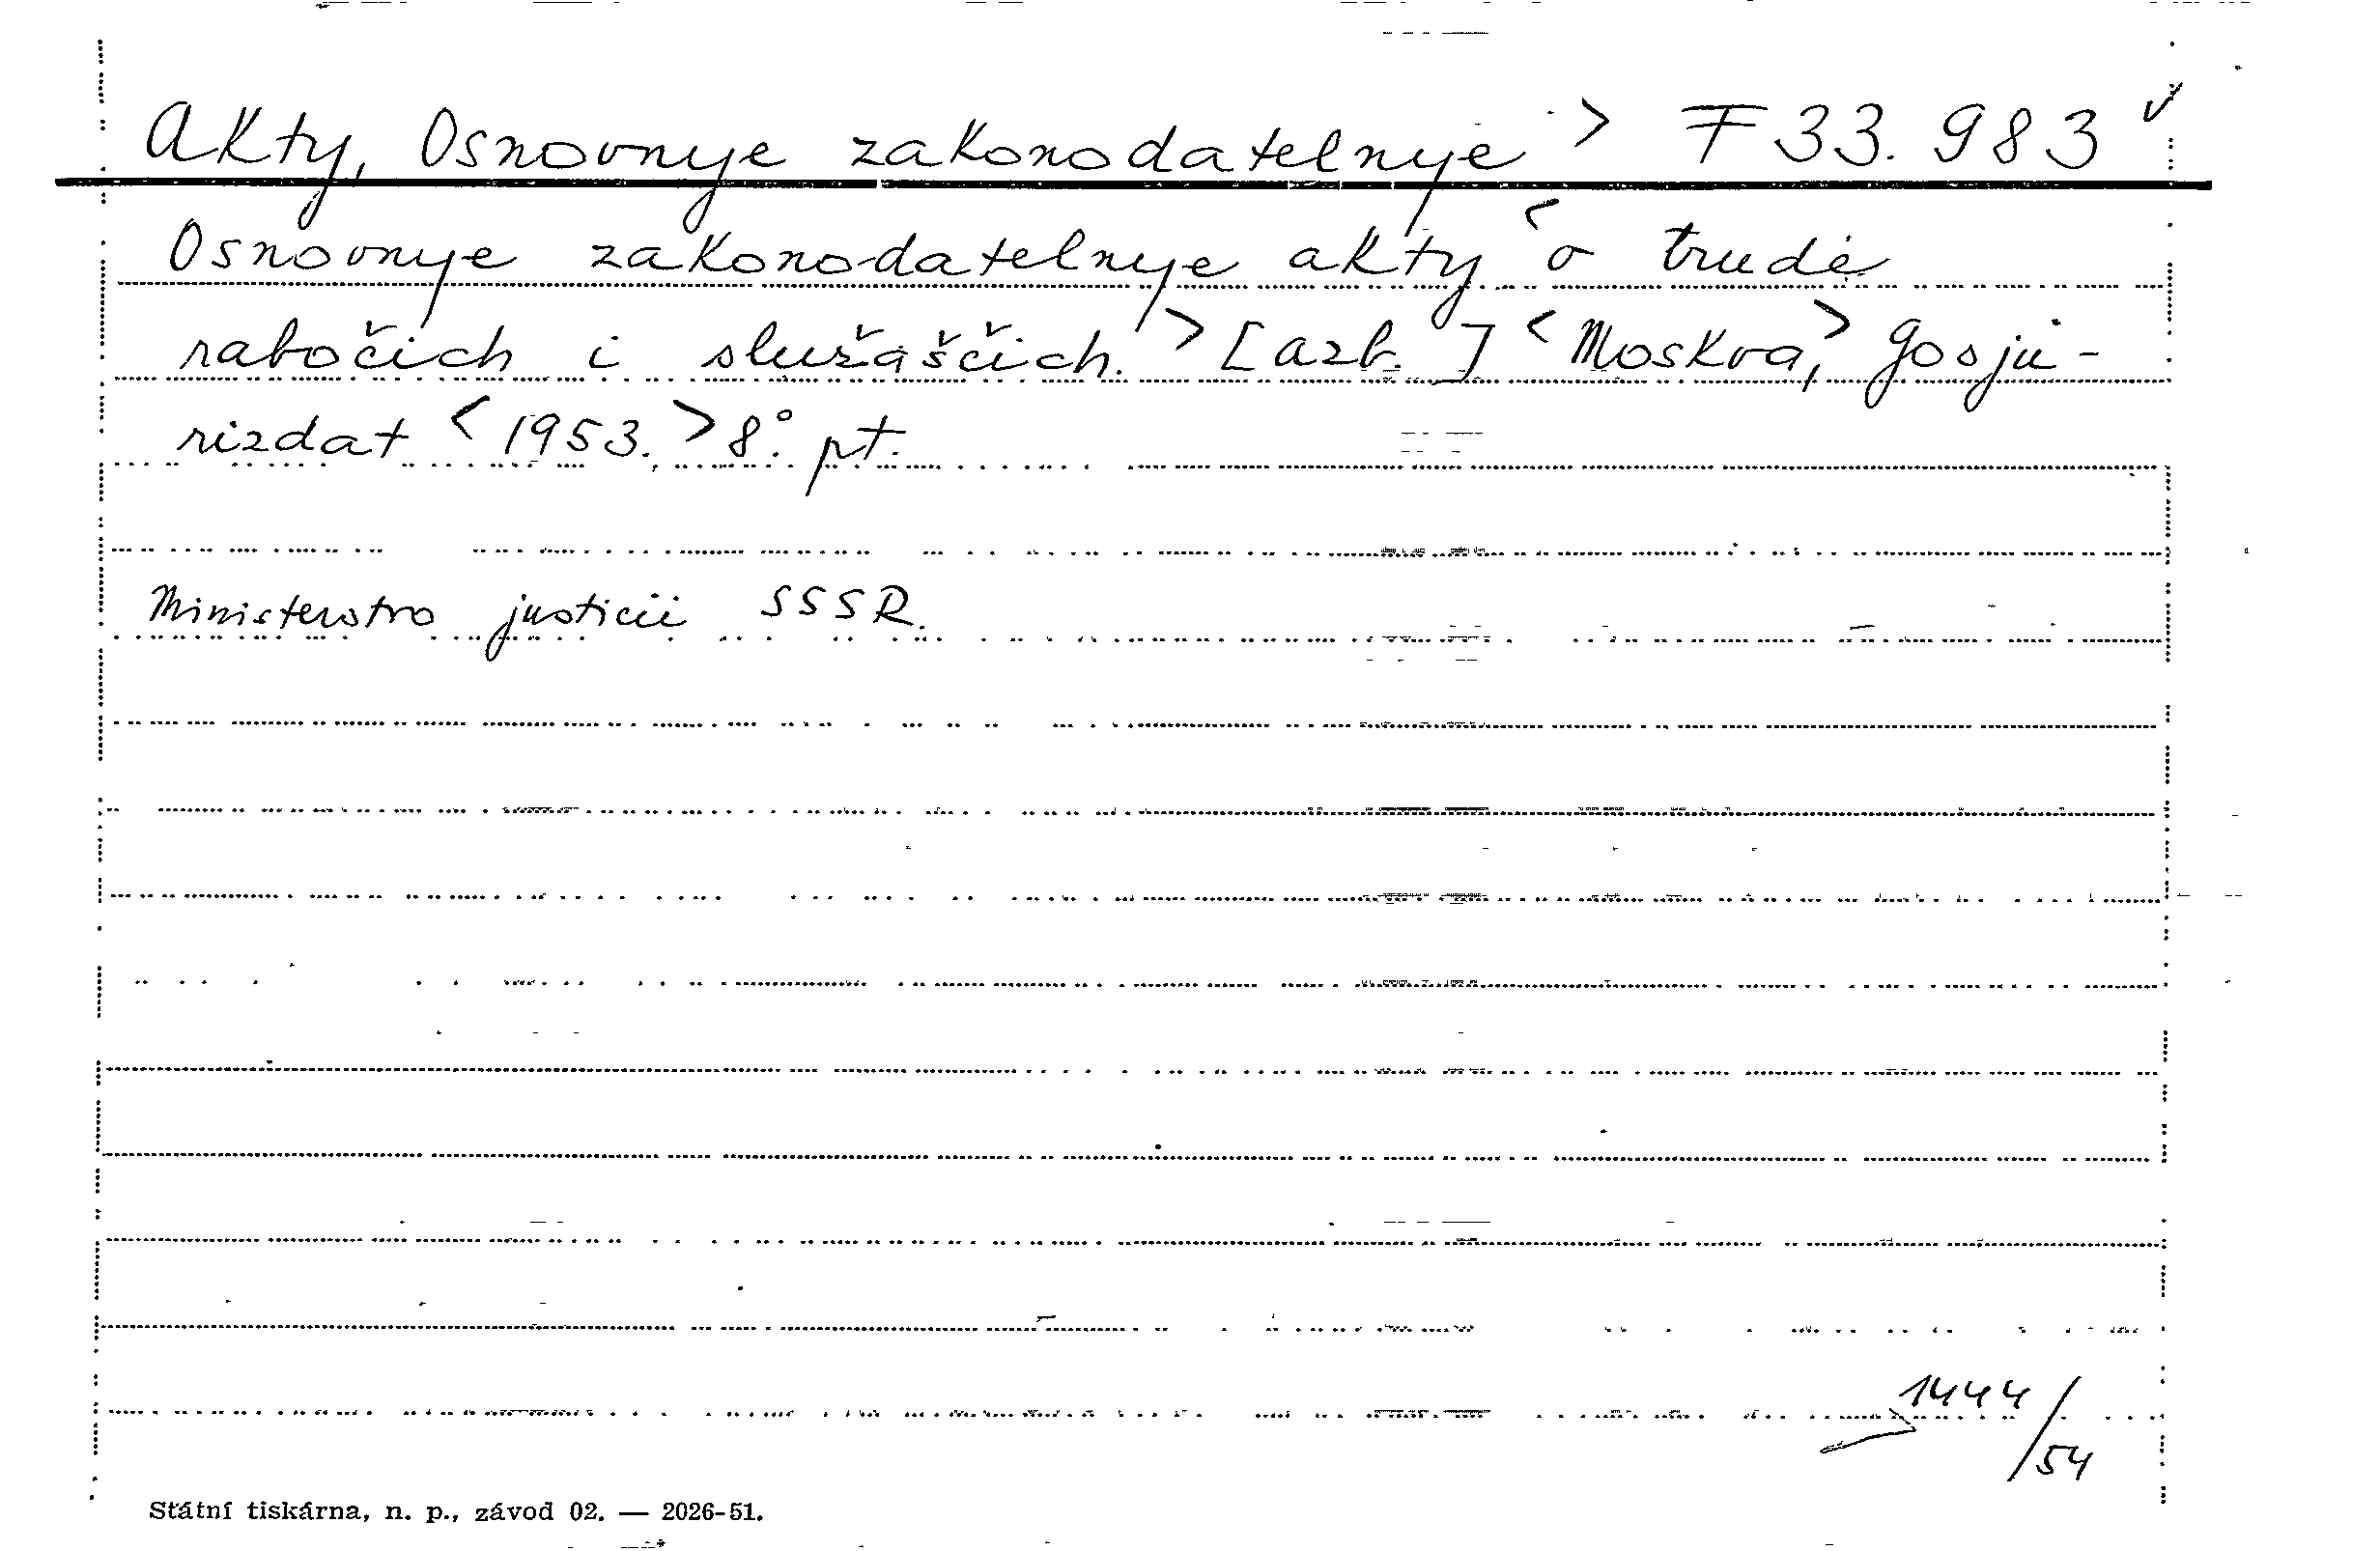 Akty, Osnovnyje zakonodatelnyje > F 33.983 ✓
Osnovnyje zakonodatelnyje akty < o trudě
rabočich i služaščich. > [azb.] < Moskva, > Gosju-
rizdat < 1953. > 8°. pt.
Ministerstvo justicii SSSR.
1444/54
Státní tiskárna, n. p., závod 02. — 2026-51.